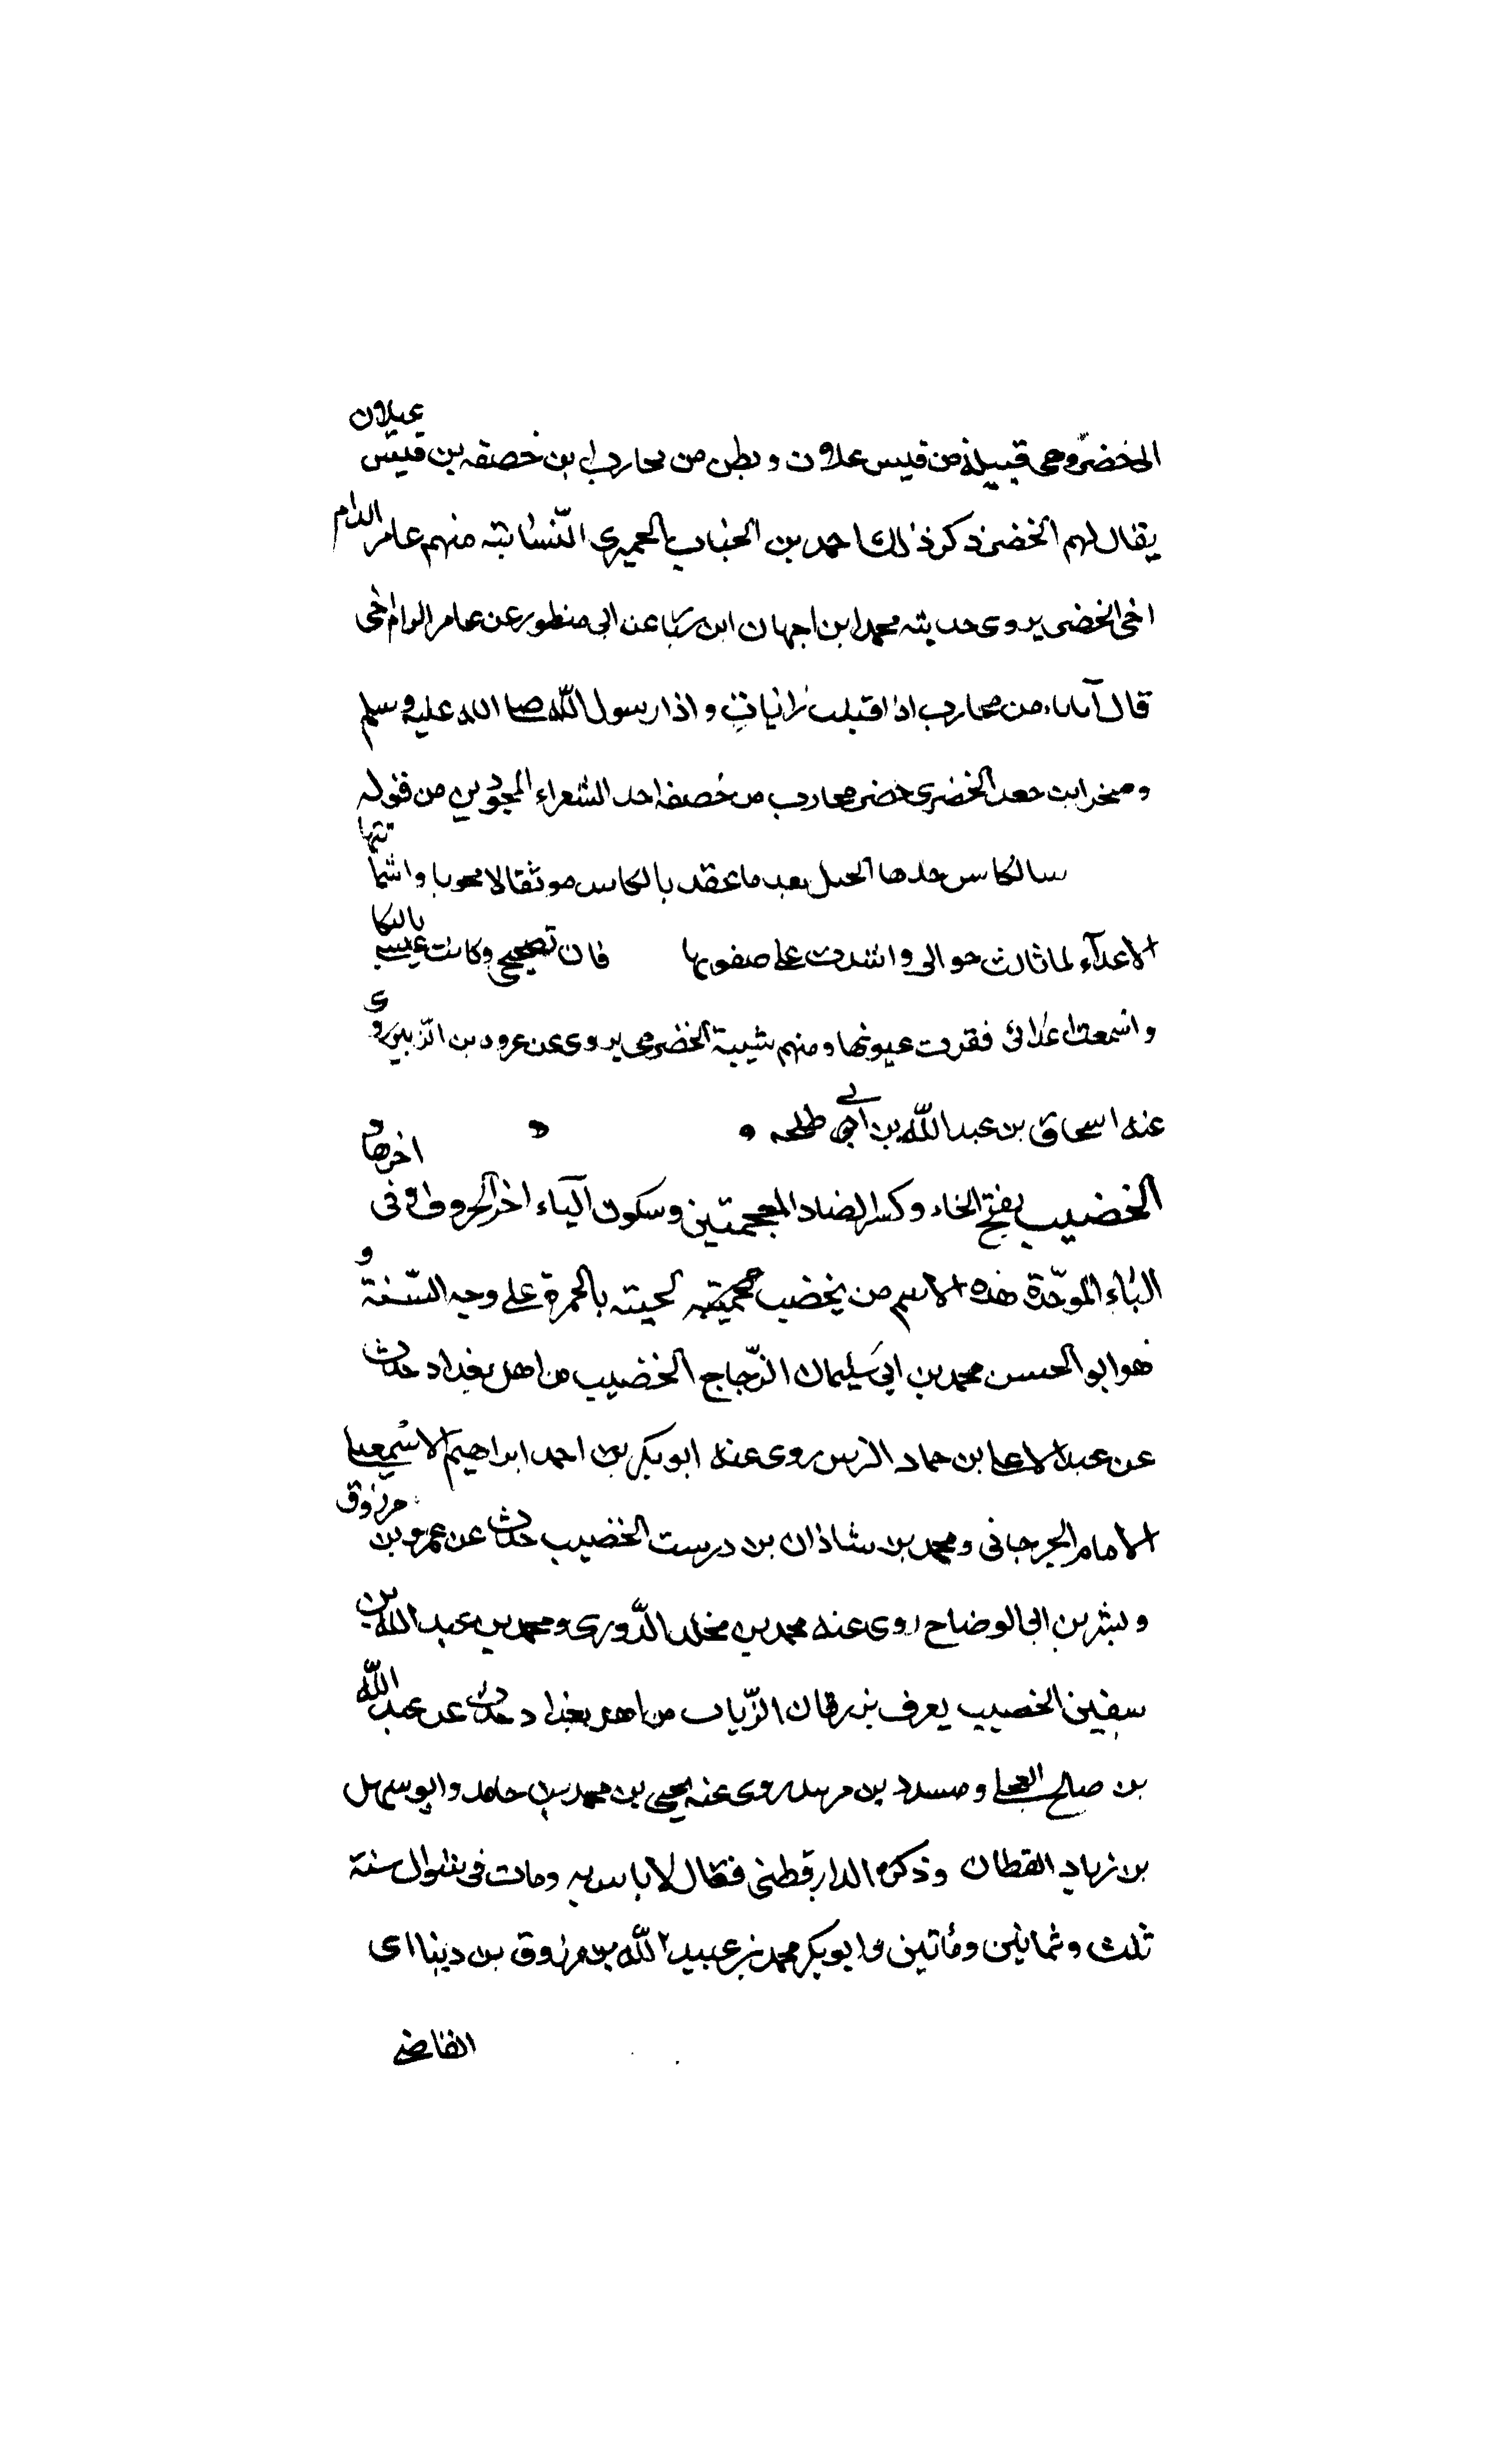 الى خضر وهى قبيلة من قيس علان وبطن من محارب ابن خصفه بن قيس عيلان
يقال لهم الخضر ذكر ذلك احمد بن الحباب الحميرى النسابة منهم عامر الرام
اخى الخضر يروى حديثه محمد ابن عن ابى منظور عن عامر الرام اخى
قال من محارب اذا اقبلت رايات واذا رسول الله صلى الله عليه وسلم
وصخر ابن جعد الخضرى خضر محارب من خصفه احد الشعراء المجودين من قوله
بعد ما عقد بالكاس موثقا لا
الاعداء لما ثالث حوالى واشدت على صفو بها فان تصبحى وكانت عيسى بالكا
واسمعك فقرت عيونها ومنهم شيبة الخضرمى يروى عن عروه بن الزبير روى
عنه اسحاق بن عبد الله بن ابى طلحه
الخضيب بفتح الخاء وكسر الضاد المعجمتين وسكون الياء اخر الحروف وفى اخرها
الباء الموحدة هذه الاسم من يخضب لحيته بالحمرة على وجه السنة و
فهو ابو الحسن محمد بن ابى سليمان الزجاج الخضيب من اهل بغداد حدث
عن عبد الاعلى بن حماد النرسى روى عنه ابو بكر بن احمد ابراهيم الاسمعيلى
الامام الجرجانى ومحمد بن شاذان بن درست الخضيب حدث عن عمرو بن مرزوق
وبشر بن ابى الوضاح روى عنه محمد بن مخلد الدورى ومحمد بن عبد الله بن
سفين الخصيب يعرف بزرقان الزيات من اهل بغداد حدث عن عبد الله
بن صالح العجلى ومسدد بن مرهد روى عنه يحيى بن محمد بن حامد وابو سهل
بن زياد القطان وذكره الدارقطنى فقال لا باس به ومات فى شوال سنة
ثلث وثمانين ومأتين وابو بكر محمد بن عبيد الله بن مرزوق بن دينا اى
القاضى